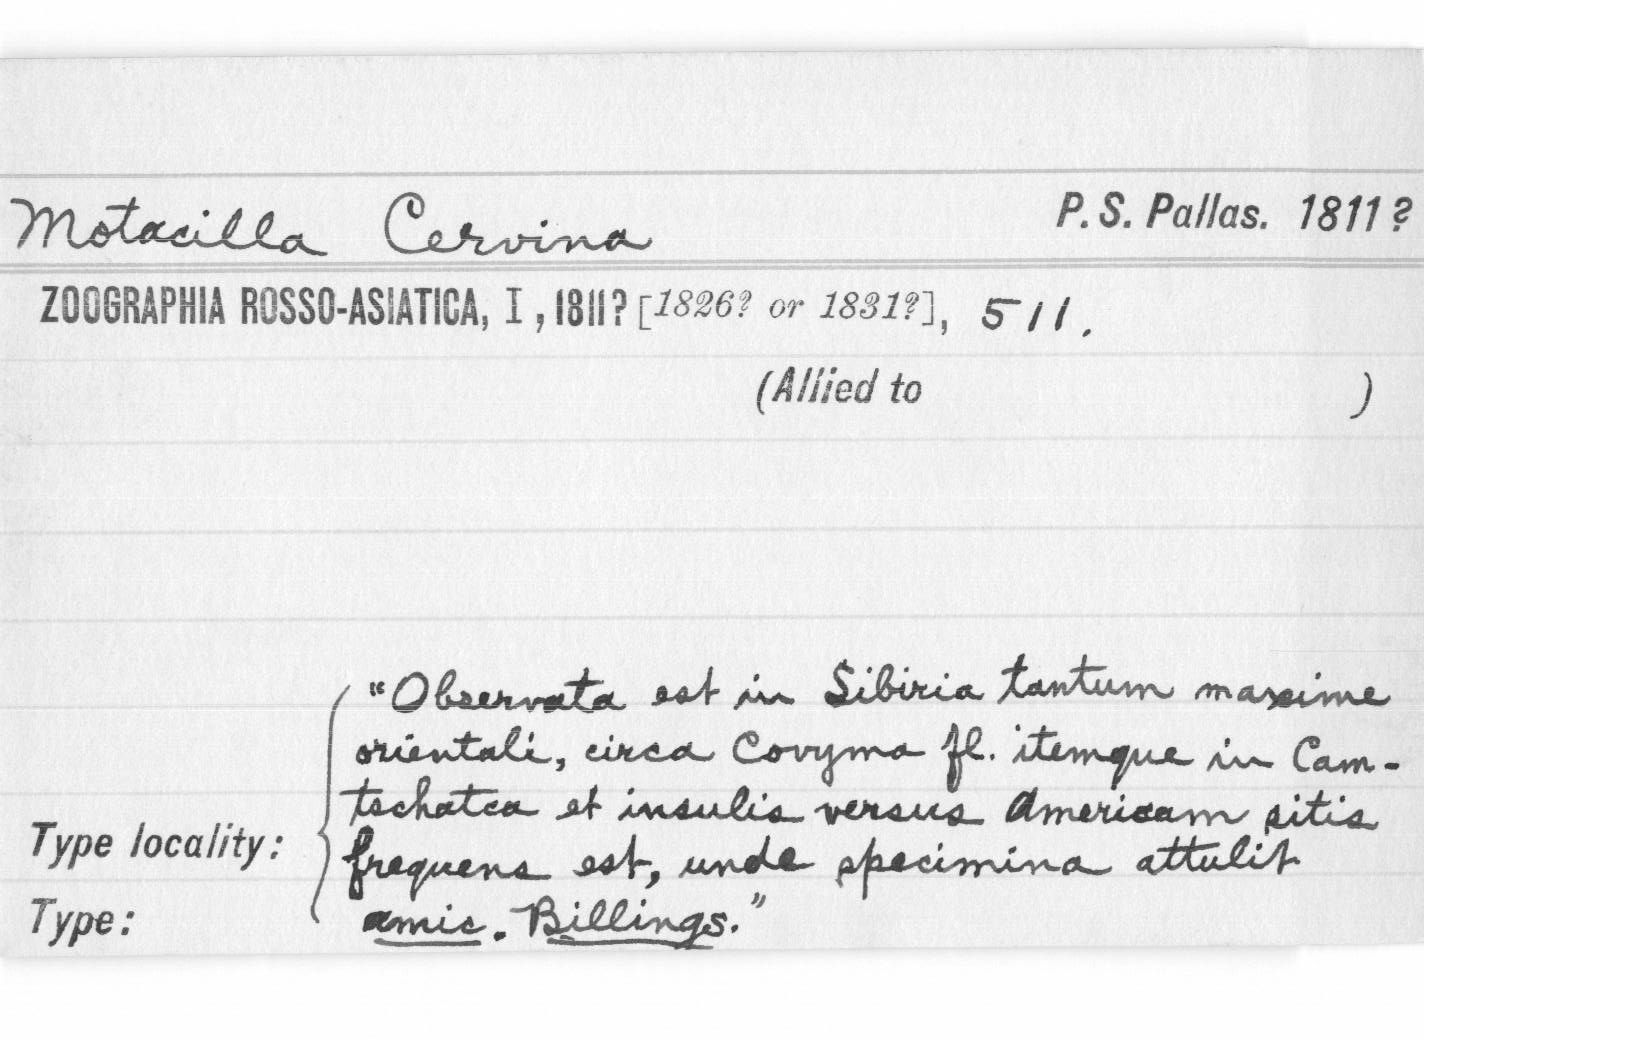 Motacilla Cervina P. S. Pallas. 1811?
ZOOGRAPHIA ROSSO-ASIATICA, I, 1811? [1826? or 1831?], 511.
(Allied to )
"Observata est in Sibiria tantum maxime
orientali, circa Covyma fl. itemque in Cam-
tschatca et insulis versus Americam sitis
Type locality: frequens est, unde specimina attulit
Type: amic. Billings."